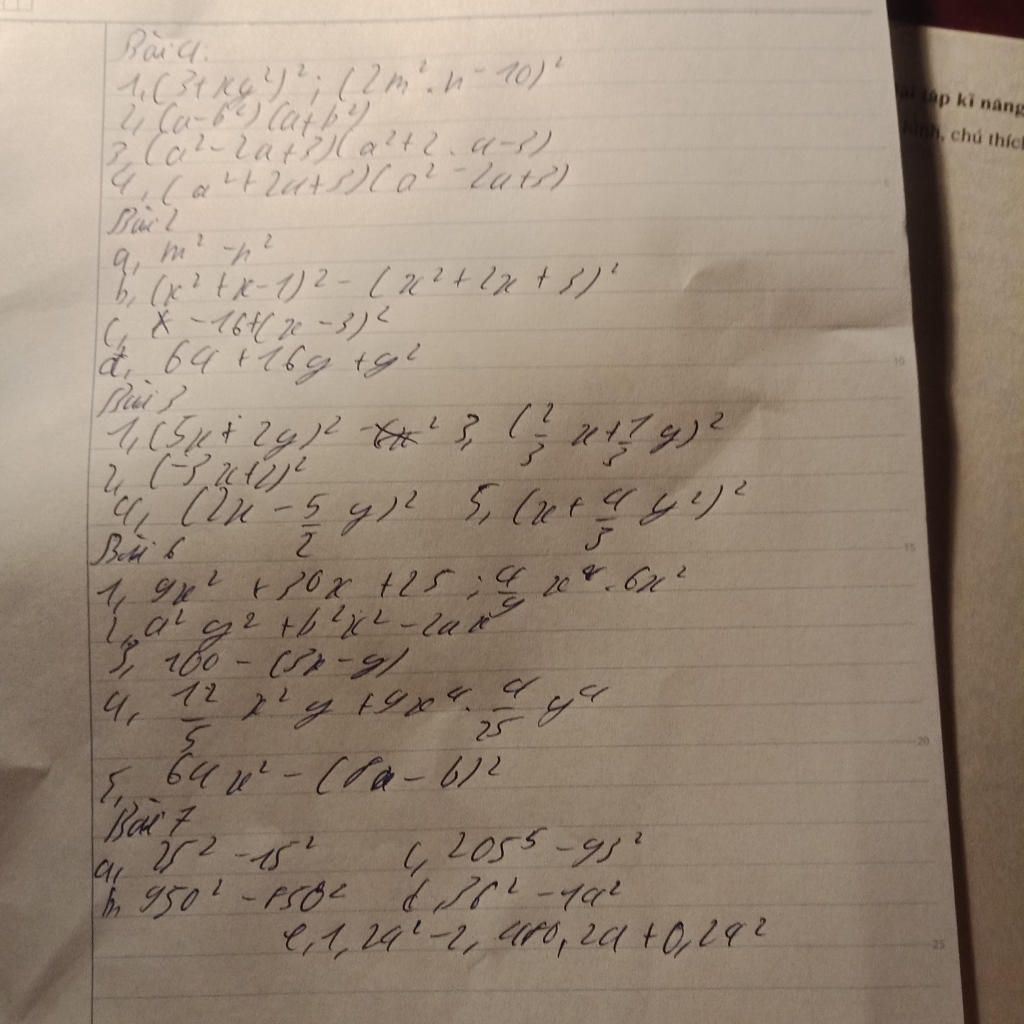 Bài 4.
1, (3+xy²)² ; (2m².n-10)²
2, (a-b²)(a+b²)
3, (a²-2a+3)(a²+2.a-3)
4, (a²+2a+3)(a²-2a+3)
Bài 2
a, m²-n²
b, (x²+x-1)²-(x²+2x+3)²
c, -16+(x-3)²
d, 64+16y+y²
Bài 3
1, (5x+2y)² 3, (2/3 x+1/3 y)²
2, (-3x+2)²
4, (2x-5/2 y)² 5, (x+4/3 y²)²
Bài 6
1, 9x²+30x+25 ; 4/9 x⁴.6x²
2, a²y²+b²x²-2ax
3, 100-(3x-y)
4, 12/5 x²y+9x⁴.4/25 y⁴
5, 64x²-(8a-b)²
Bài 7
a, 25²-15² c, 205⁵-95²
b, 950²-850² d, 36²-14²
e, 1,24²-2, 0,24+0,24²
tập kĩ năng
chú thích
5
10
15
20
25